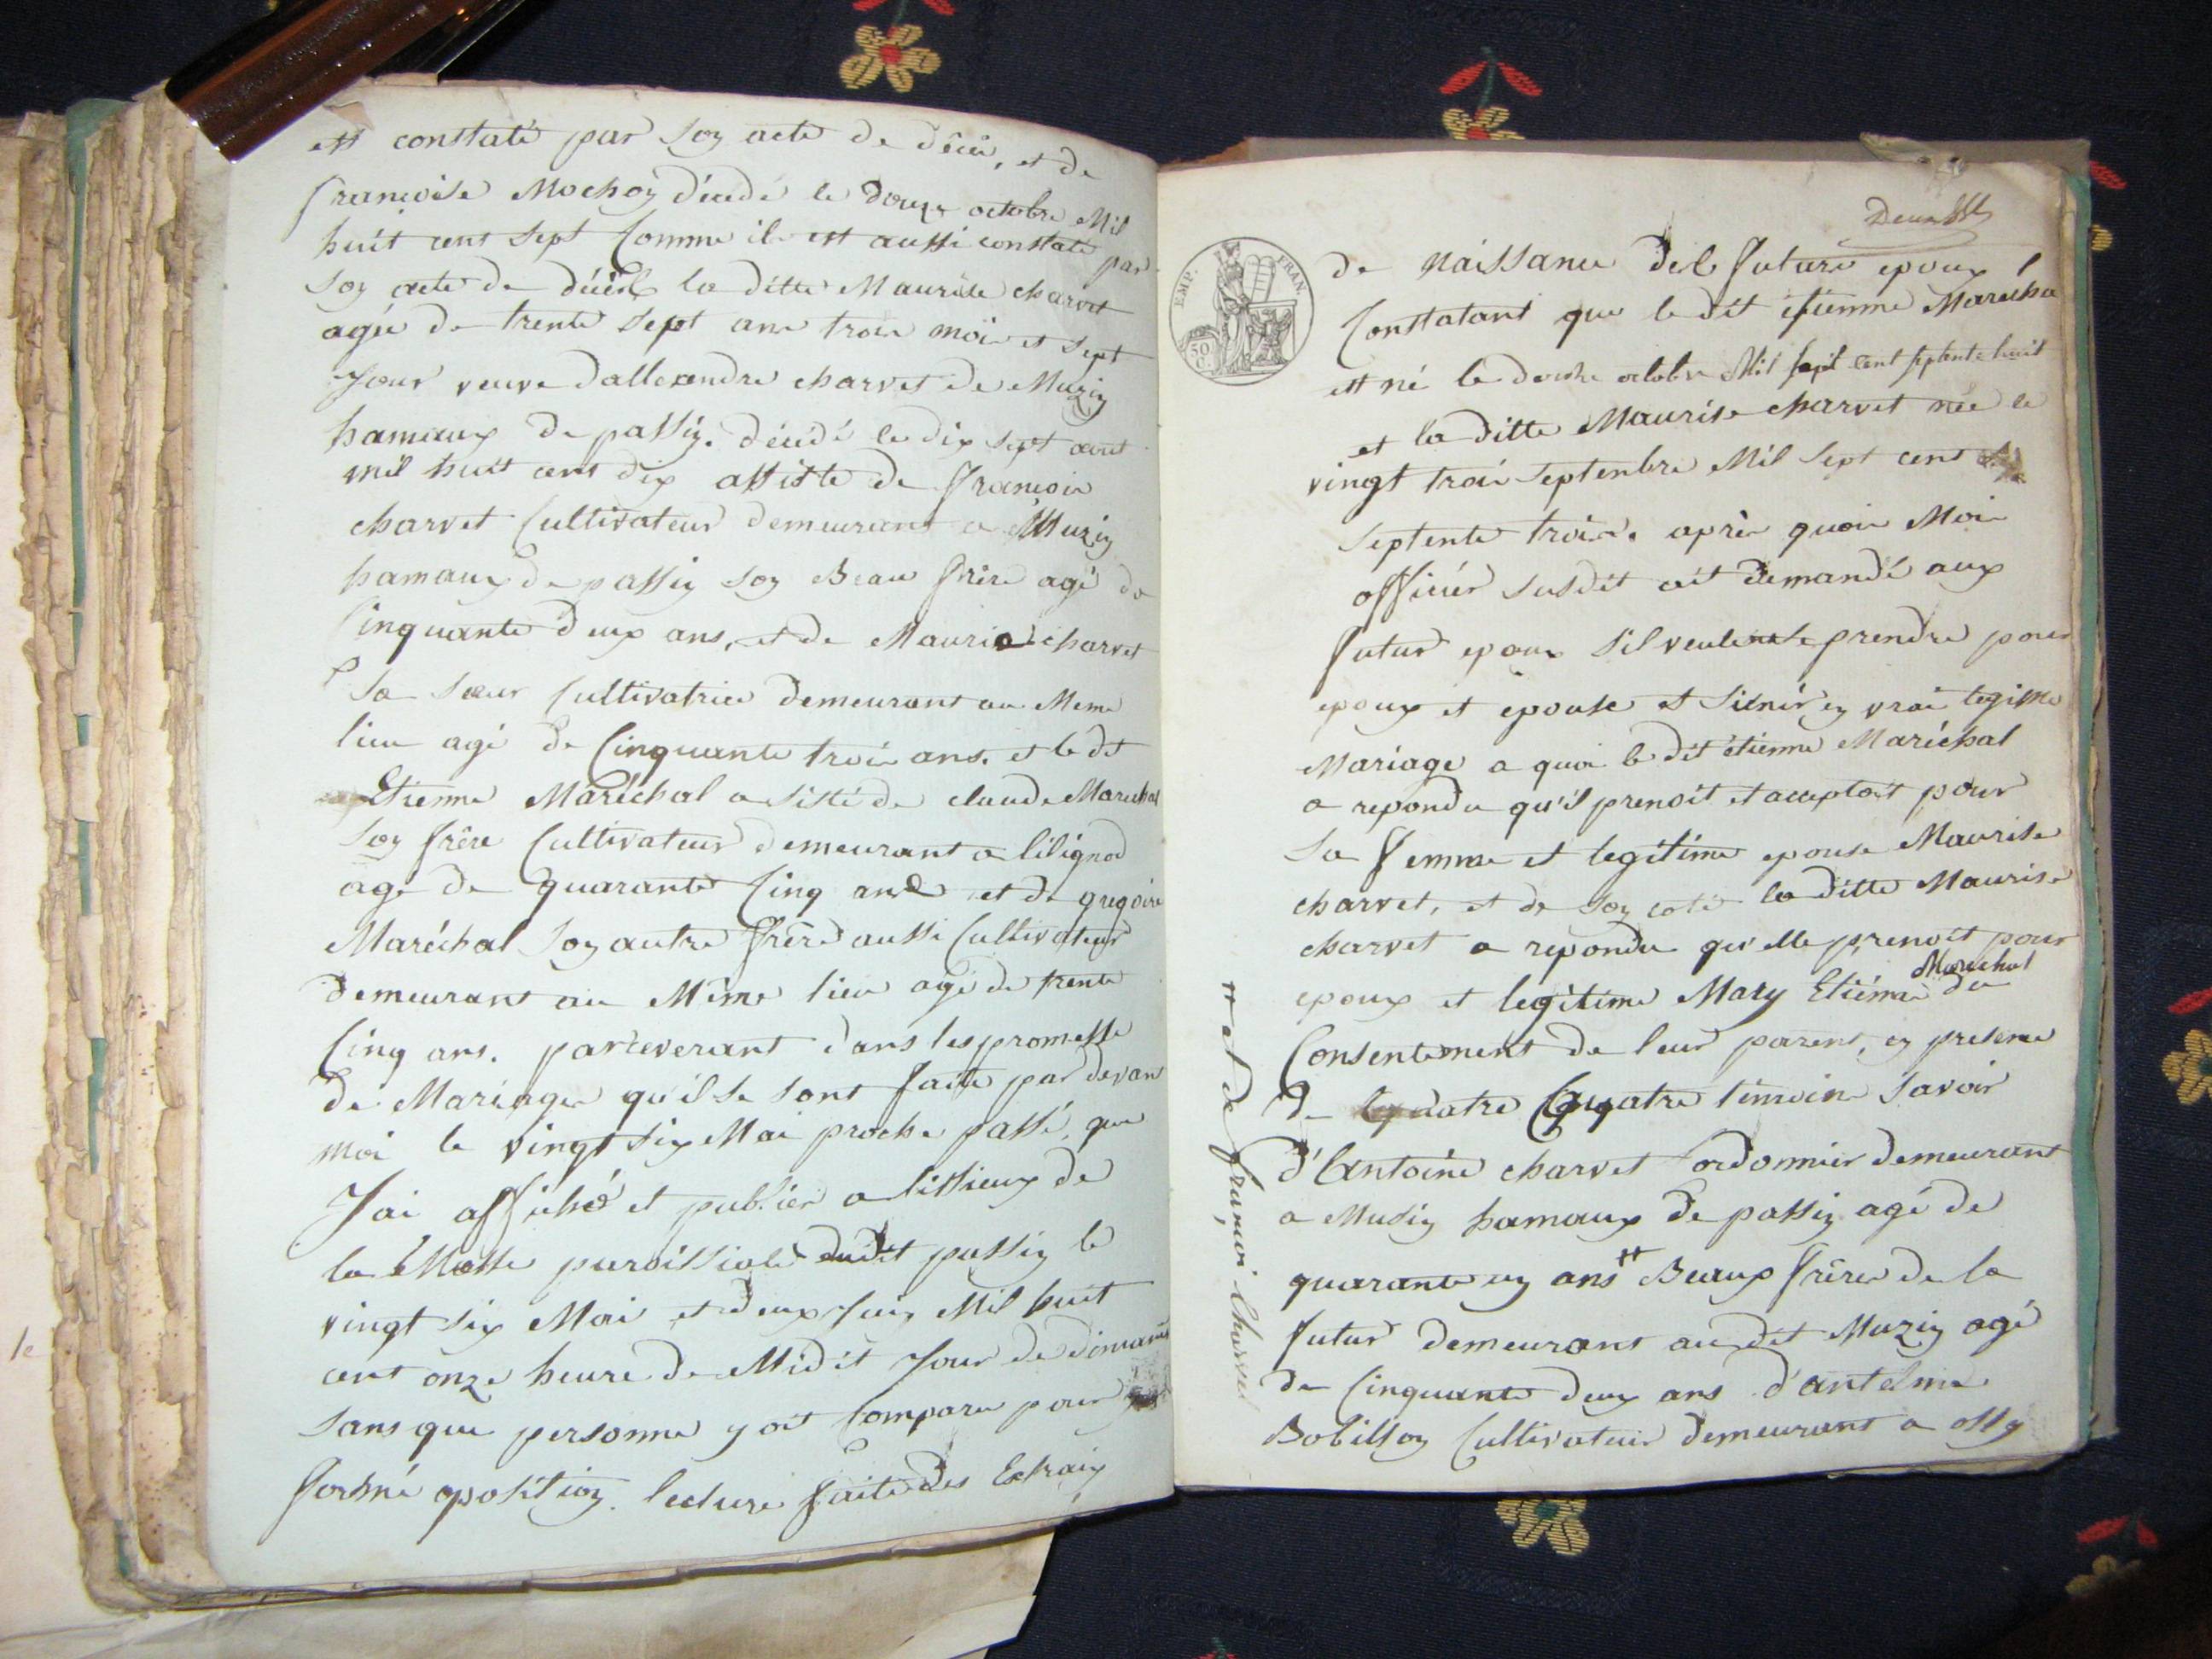 est constaté par son acte de décès, et de
françoise Mochon décédé le douze octobre Mil
huit cent sept Comme il est aussi constaté par
son acte de décès la ditte Maurise charvet
agée de trente sept ans trois mois et sept
Jour veuve dallexandre charvet de Muzin
hamaux de passin. décédé le dix sept aout
mil huit cent dix assisté de françois
charvet Cultivateur demeurant a Muzin
hamaux de passin son Beau frère agé de
Cinquante deux ans, et de Maurise charvet
sa sœur Cultivatrice demeurant au Meme
lieu agé de Cinquante trois ans. et le dt
Etienne Maréchal a sisté de claude Marechal
son frère Cultivateur demeurant a lilignod
agé de quarante Cinq ans et de gregoire
Maréchal son autre frère aussi Cultivateur
demeurant au Même lieu agé de trente
Cinq ans. parceverant dans les promesse
de Mariage qu'il se sont faite par devant
moi le vingt six Mai proche passé, que
J'ai affiché et publier a lissieux de
la Messe paroissiale dudit passin le
vingt six Mai et deux Juin Mil huit
cent onze heure de Midit Jour de dimanche
sans que personne y ait Comparu pour
formé oposition. lecture faite des Extrais
Deuxsst
EMP. FRAN.
50 C.
de naissance del future epoux
Constatant que le dit etienne Marécha
est né le douze octobre Mil sept cent septente huit
et la ditte Maurise charvet née le
vingt trois septenbre Mil sept cent
septente trois. après quoi Moi
officier susdit ait demandé aux
futur epoux s'il veulent se prendre pour
epoux et epouse et s'unir en vrai legitime
Mariage a quoi le dit étienne Maréchal
a repondu qu'il prenoit et acceptoit pour
sa femme et legitime epouse Maurise
charvet, et de son coté la ditte Maurise
charvet a repondu qu'elle prenoit pour
epoux et legitime Mary Etienne Marechal du
Consentement de leur parens, en presence
de Cquatre témoins savoir
d'Antoine charvet Cordonnier demeurant
a Musin hamaux de passin agé de
quarante un ans # Beaux frères de la
futur demeurant au dit Muzin agé
de Cinquante deux ans d'antelme
Bobillon Cultivateur demeurant a ossy
# et de françois Charvet